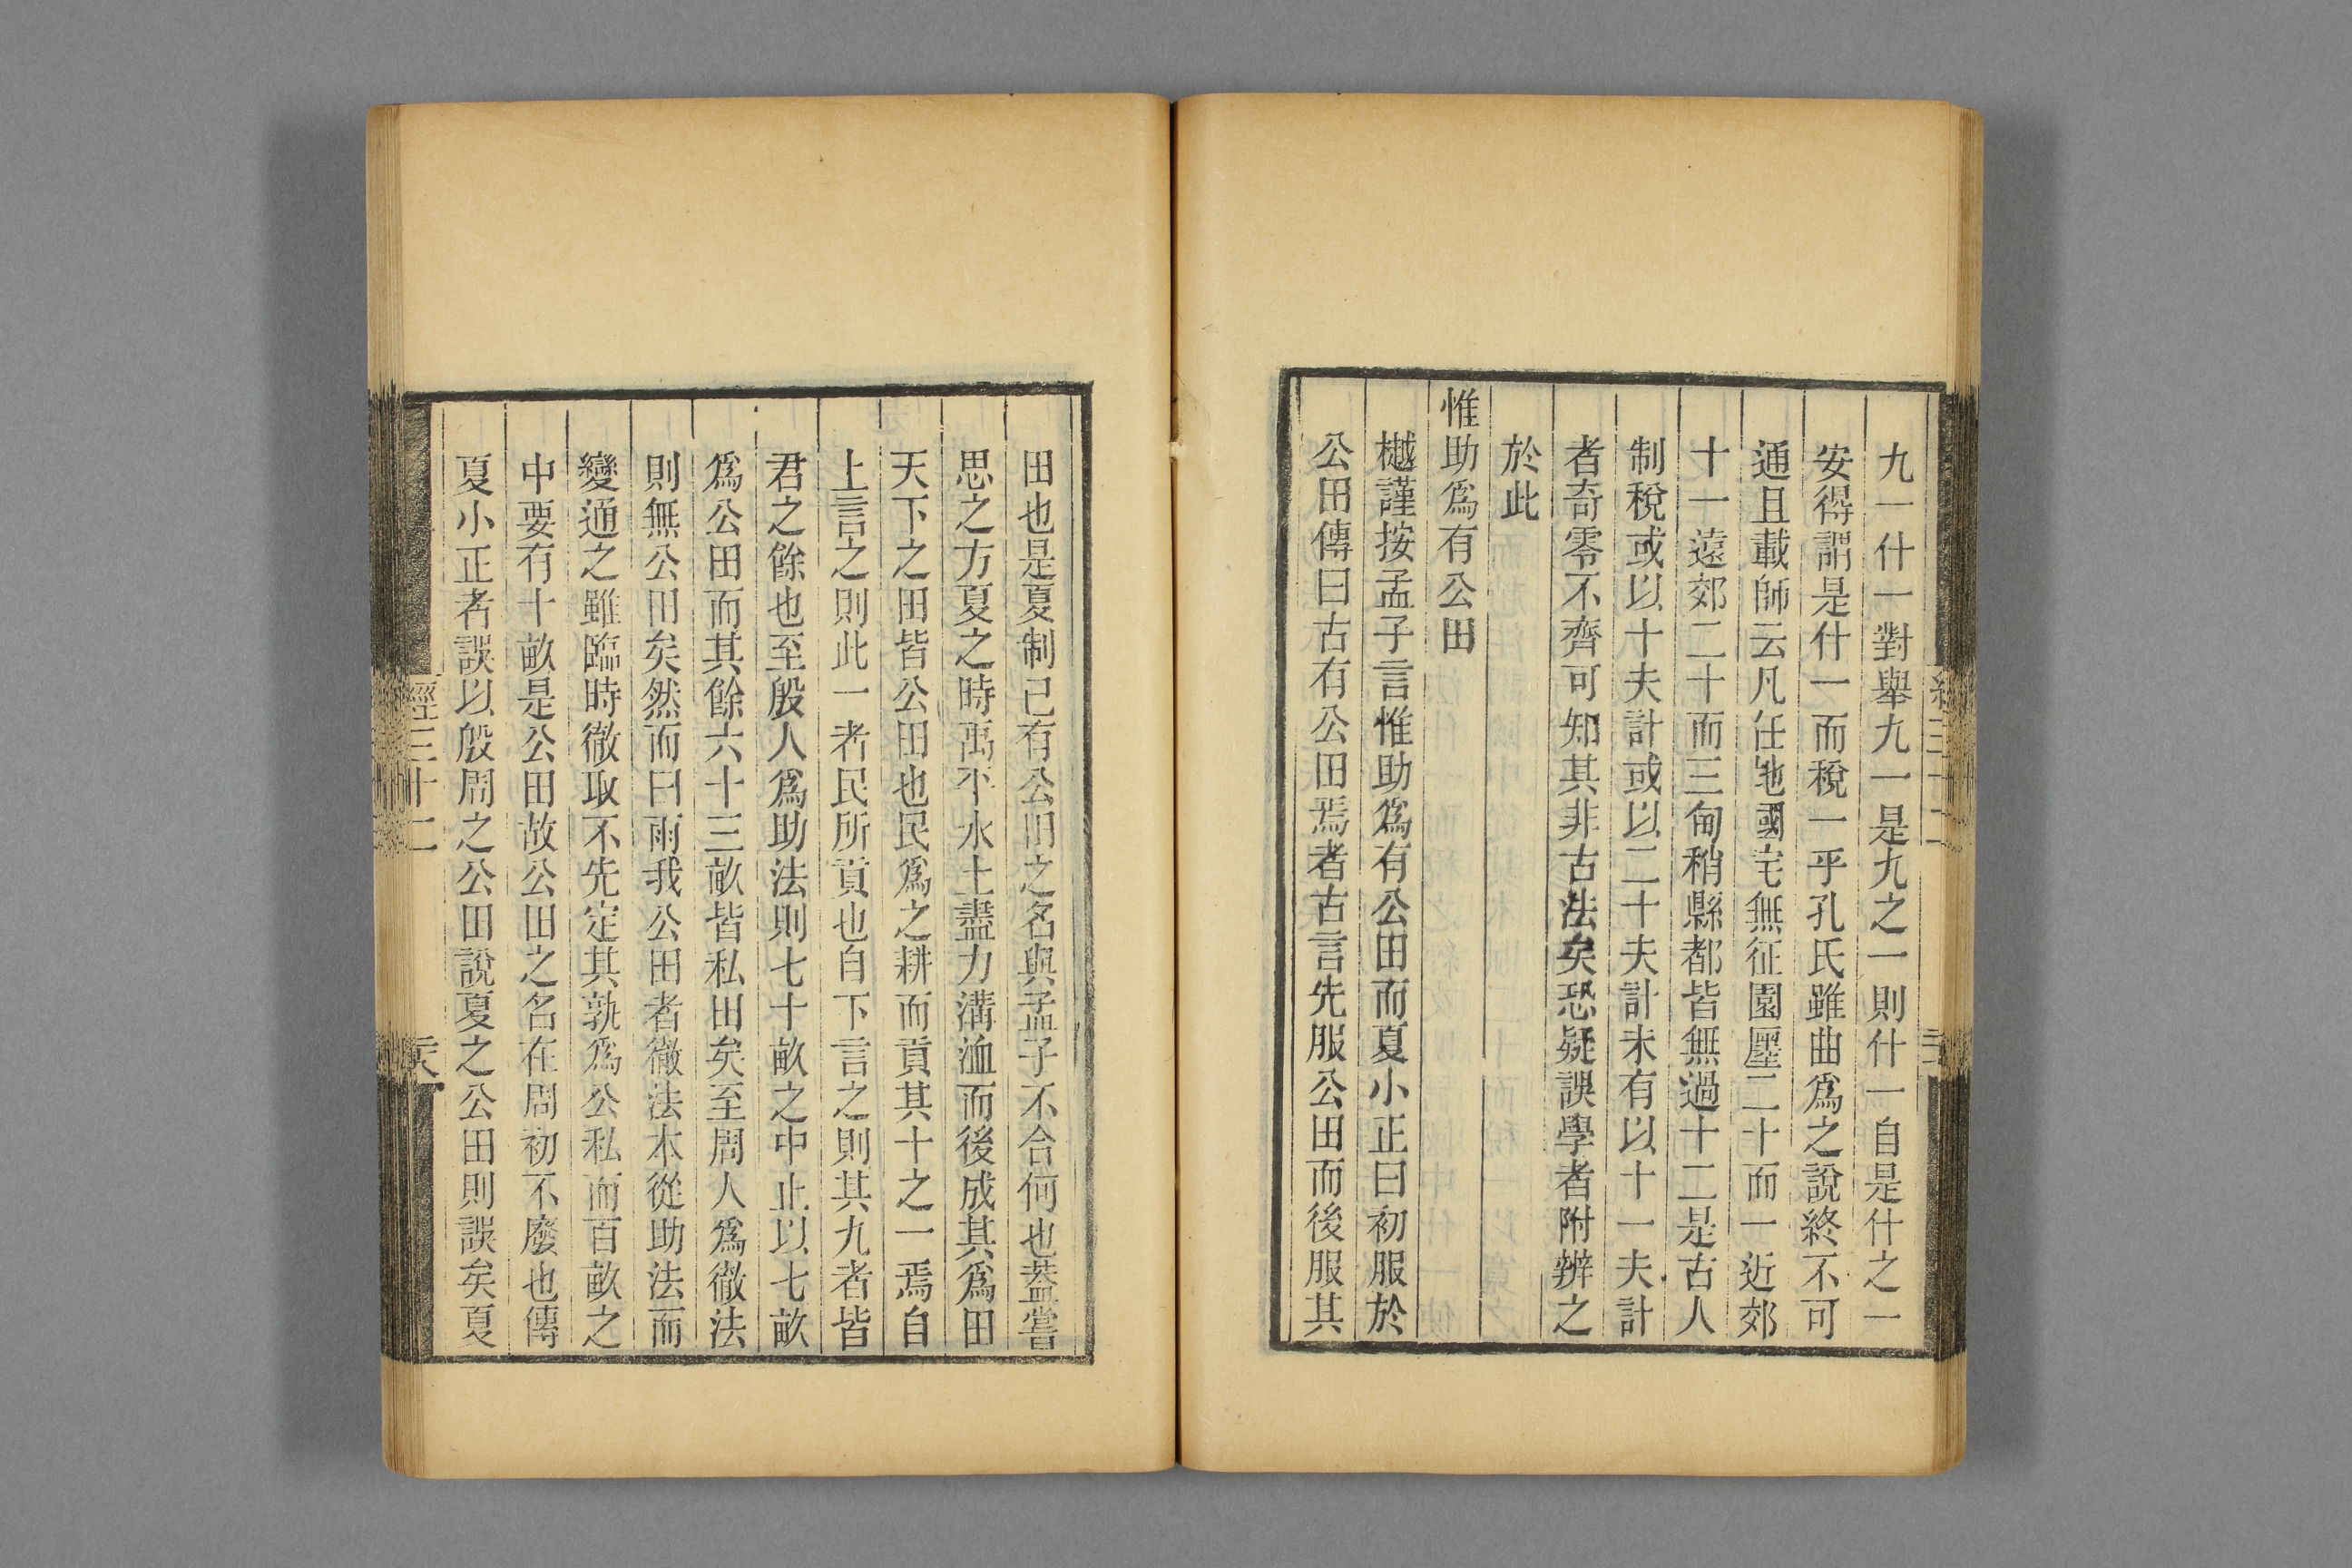 九一什一對舉九一是九之一則什一自是什之一
安得謂是什一而稅一乎孔氏雖曲爲之說終不可
通且載師云凡任地國宅無征園廛二十而一近郊
十一遠郊二十而三甸稍縣都皆無過十二是古人
制稅或以十夫計或以二十夫計未有以十一夫計
者奇零不齊可知其非古法矣恐疑誤學者附辨之
於此
惟助爲有公田
樾謹按孟子言惟助爲有公田而夏小正曰初服於
公田傳曰古有公田焉者古言先服公田而後服其
田也是夏制已有公田之名與孟子不合何也葢嘗
思之方夏之時禹平水土盡力溝洫而後成其爲田
天下之田皆公田也民爲之耕而貢其十之一焉自
上言之則此一者民所貢也自下言之則其九者皆
君之餘也至殷人爲助法則七十畝之中止以七畝
爲公田而其餘六十三畝皆私田矣至周人爲徹法
則無公田矣然而曰雨我公田者徹法本從助法而
變通之雖臨時徹取不先定其孰爲公私而百畝之
中要有十畝是公田故公田之名在周初不廢也傳
夏小正者誤以殷周之公田說夏之公田則誤矣夏
經三十二